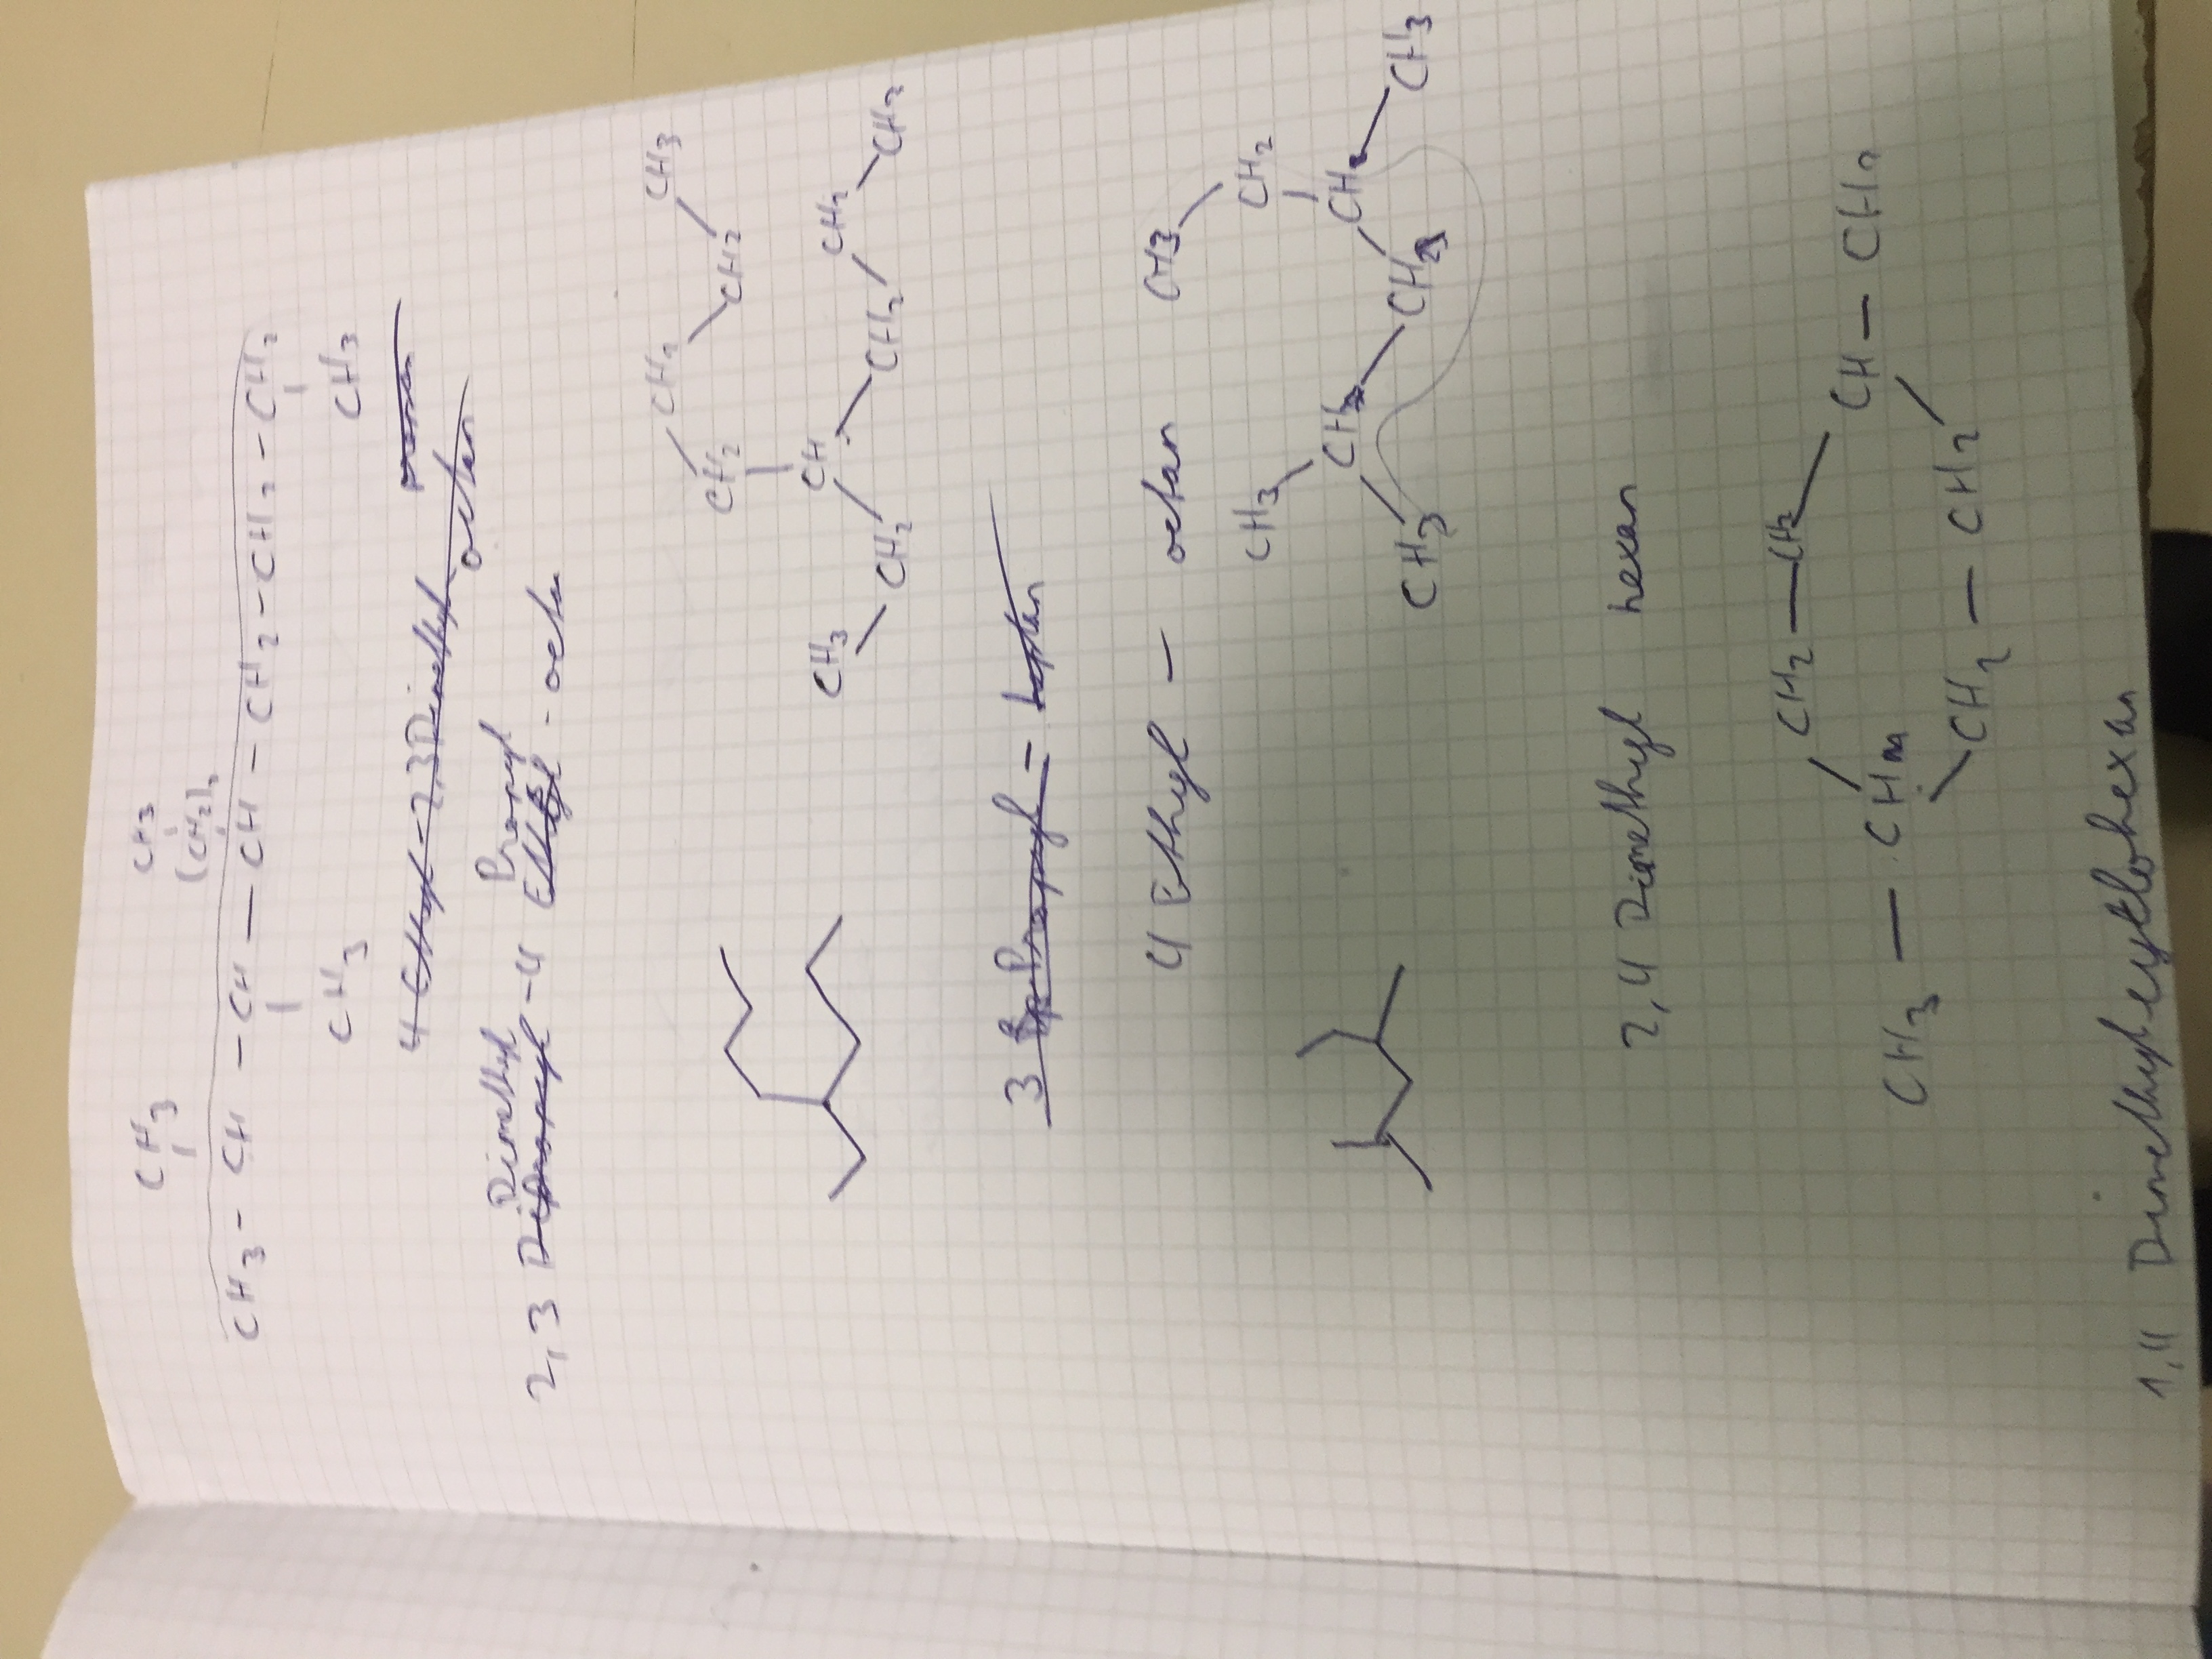 CH3 CH3
(CH2)2
CH3 - CH - CH - CH - CH2 - CH2 - CH2
CH3 CH3
4 Ethyl - 2,3 Dimethyl octan
Dimethyl Propyl
2,3 Dipropyl - 4 Ethyl - octan
CH2 CH3
CH2 CH2
CH3 CH CH2
CH2 CH2 CH3
3 Propyl - heptan
4 Ethyl - octan CH3
CH3 CH2
CH CH
CH3 CH2 CH3
2,4 Dimethyl hexan
CH2 - CH2
CH3 - CH CH - CH3
CH2 - CH2
1,4 Dimethylcyclohexan